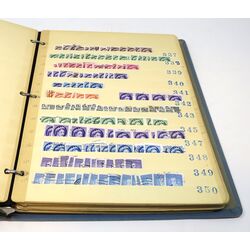 337
338
339
340
341
342
343
345
346
347
348
349
350